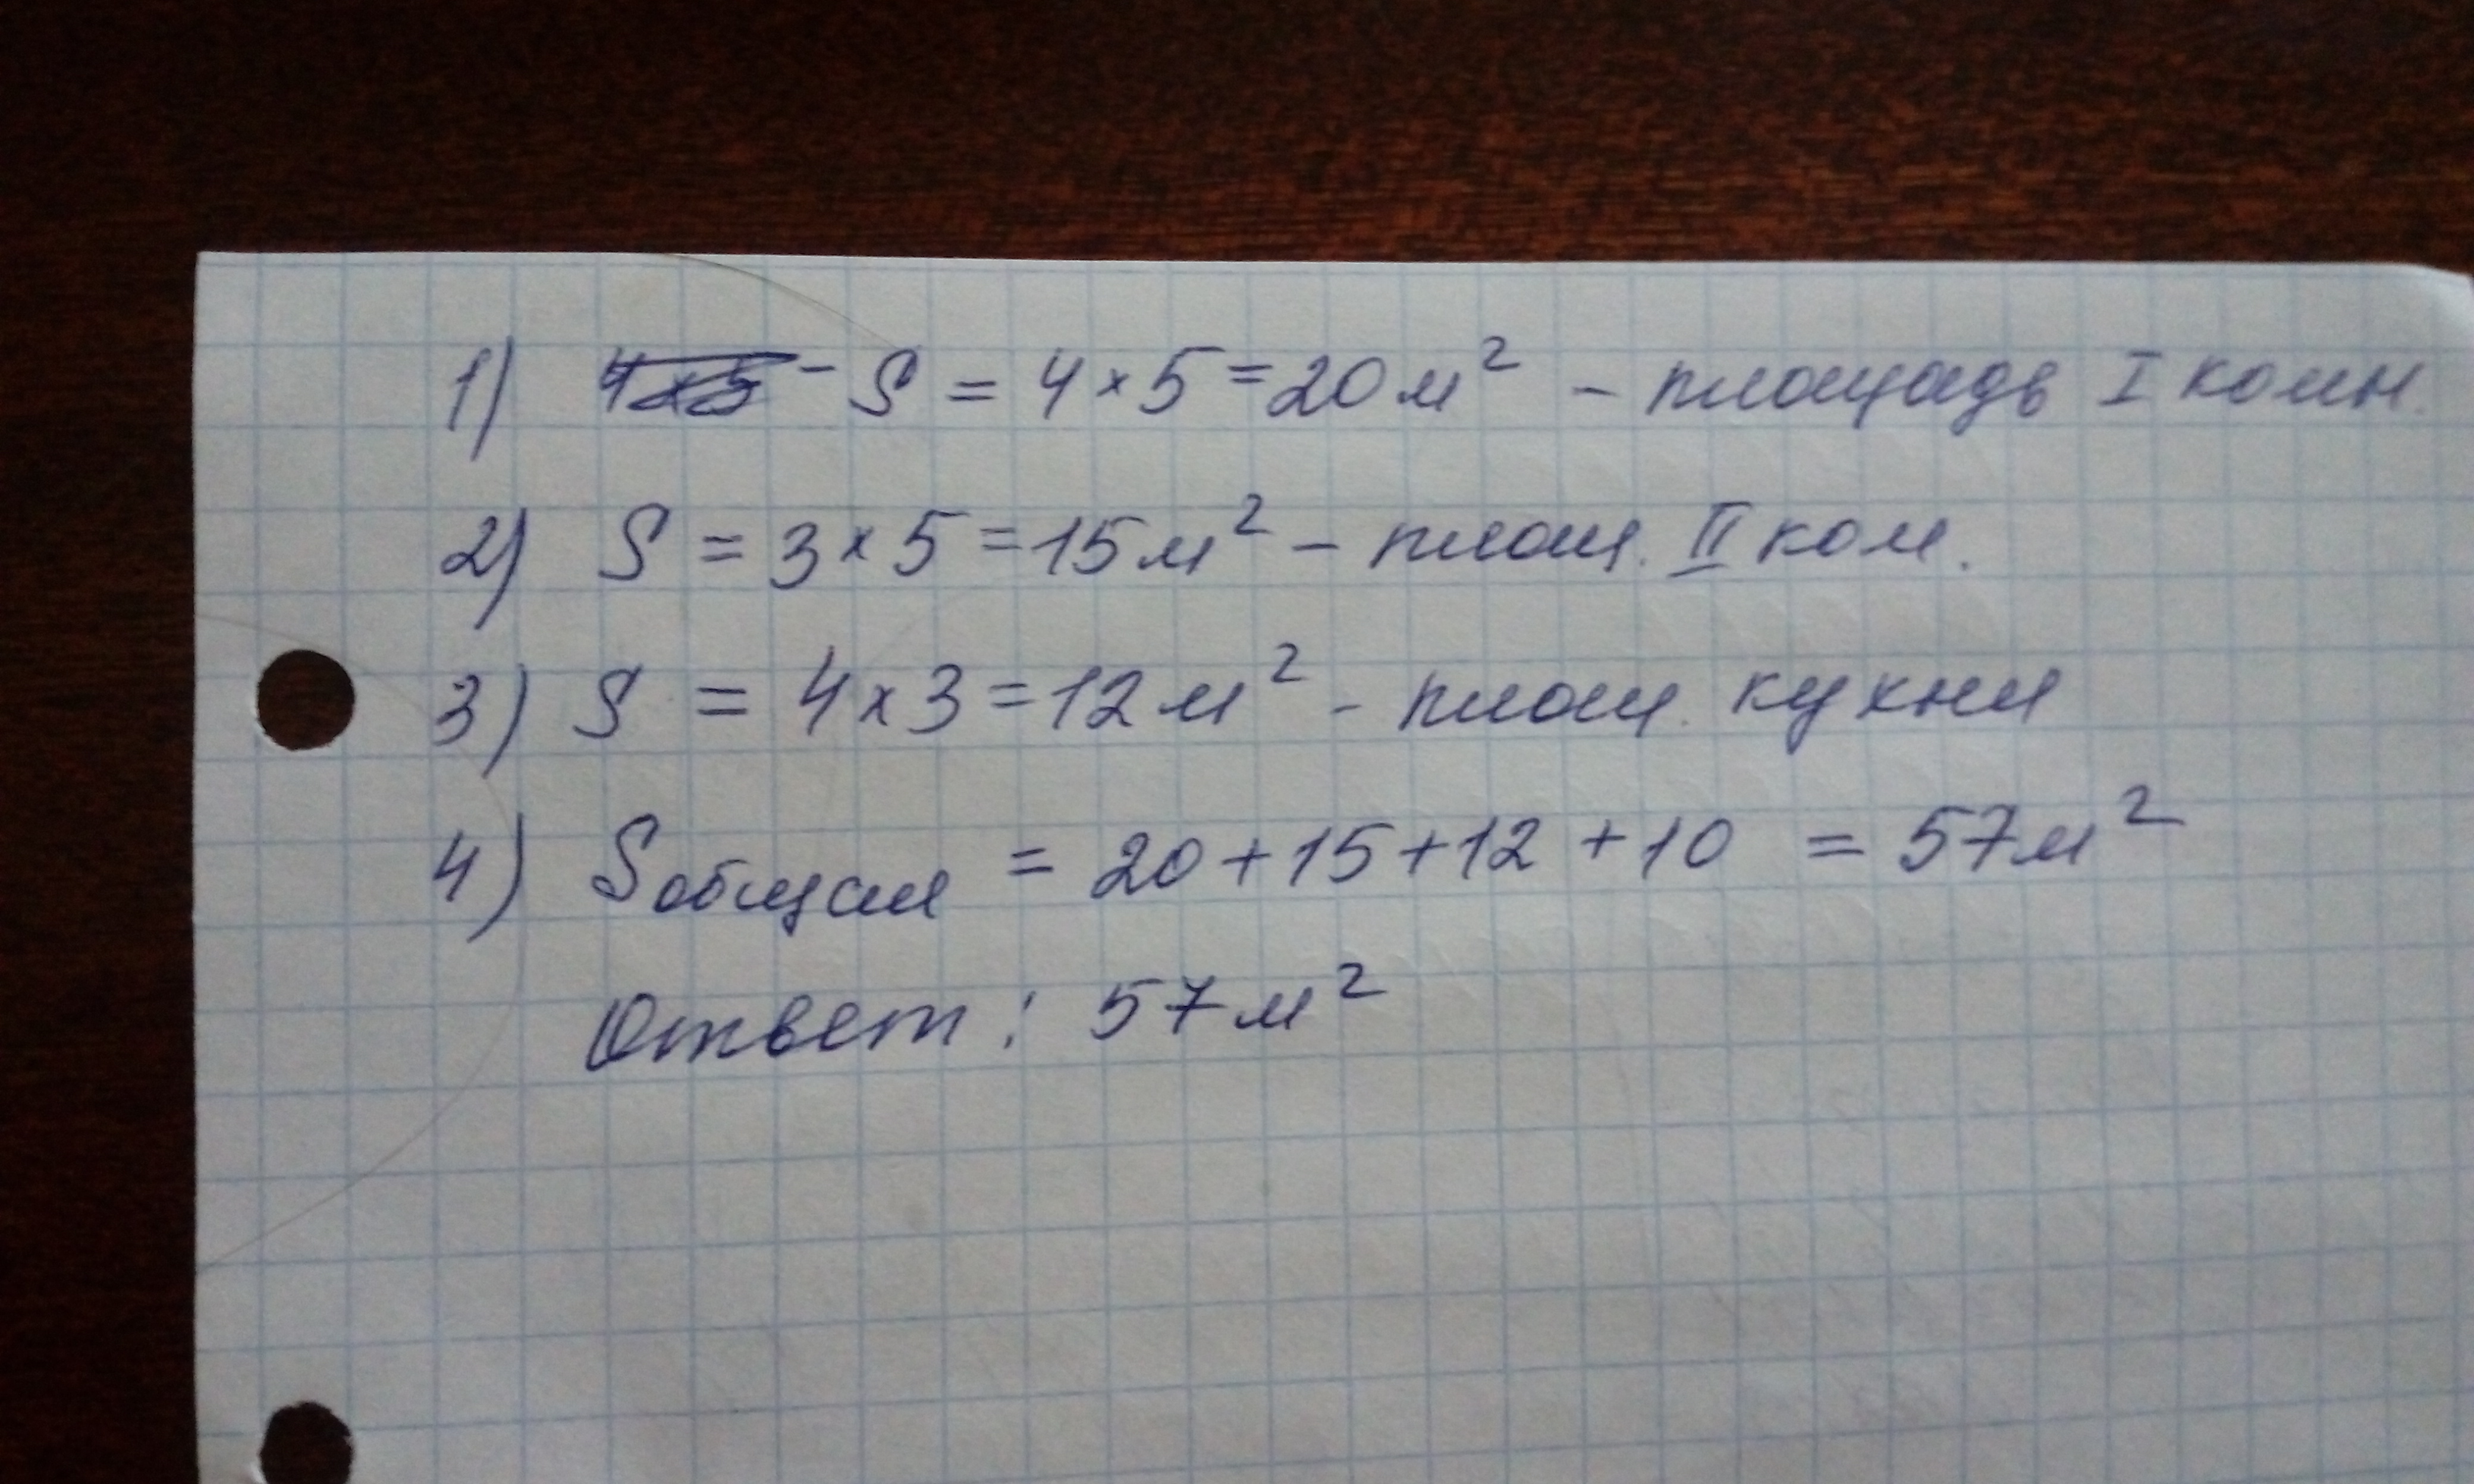 1) S = 4 × 5 = 20 м² – площадь I комн.
2) S = 3 × 5 = 15 м² – площ. II ком.
3) S = 4 × 3 = 12 м² - площ. кухни
4) Sобщая = 20 + 15 + 12 + 10 = 57 м²
Ответ: 57 м²